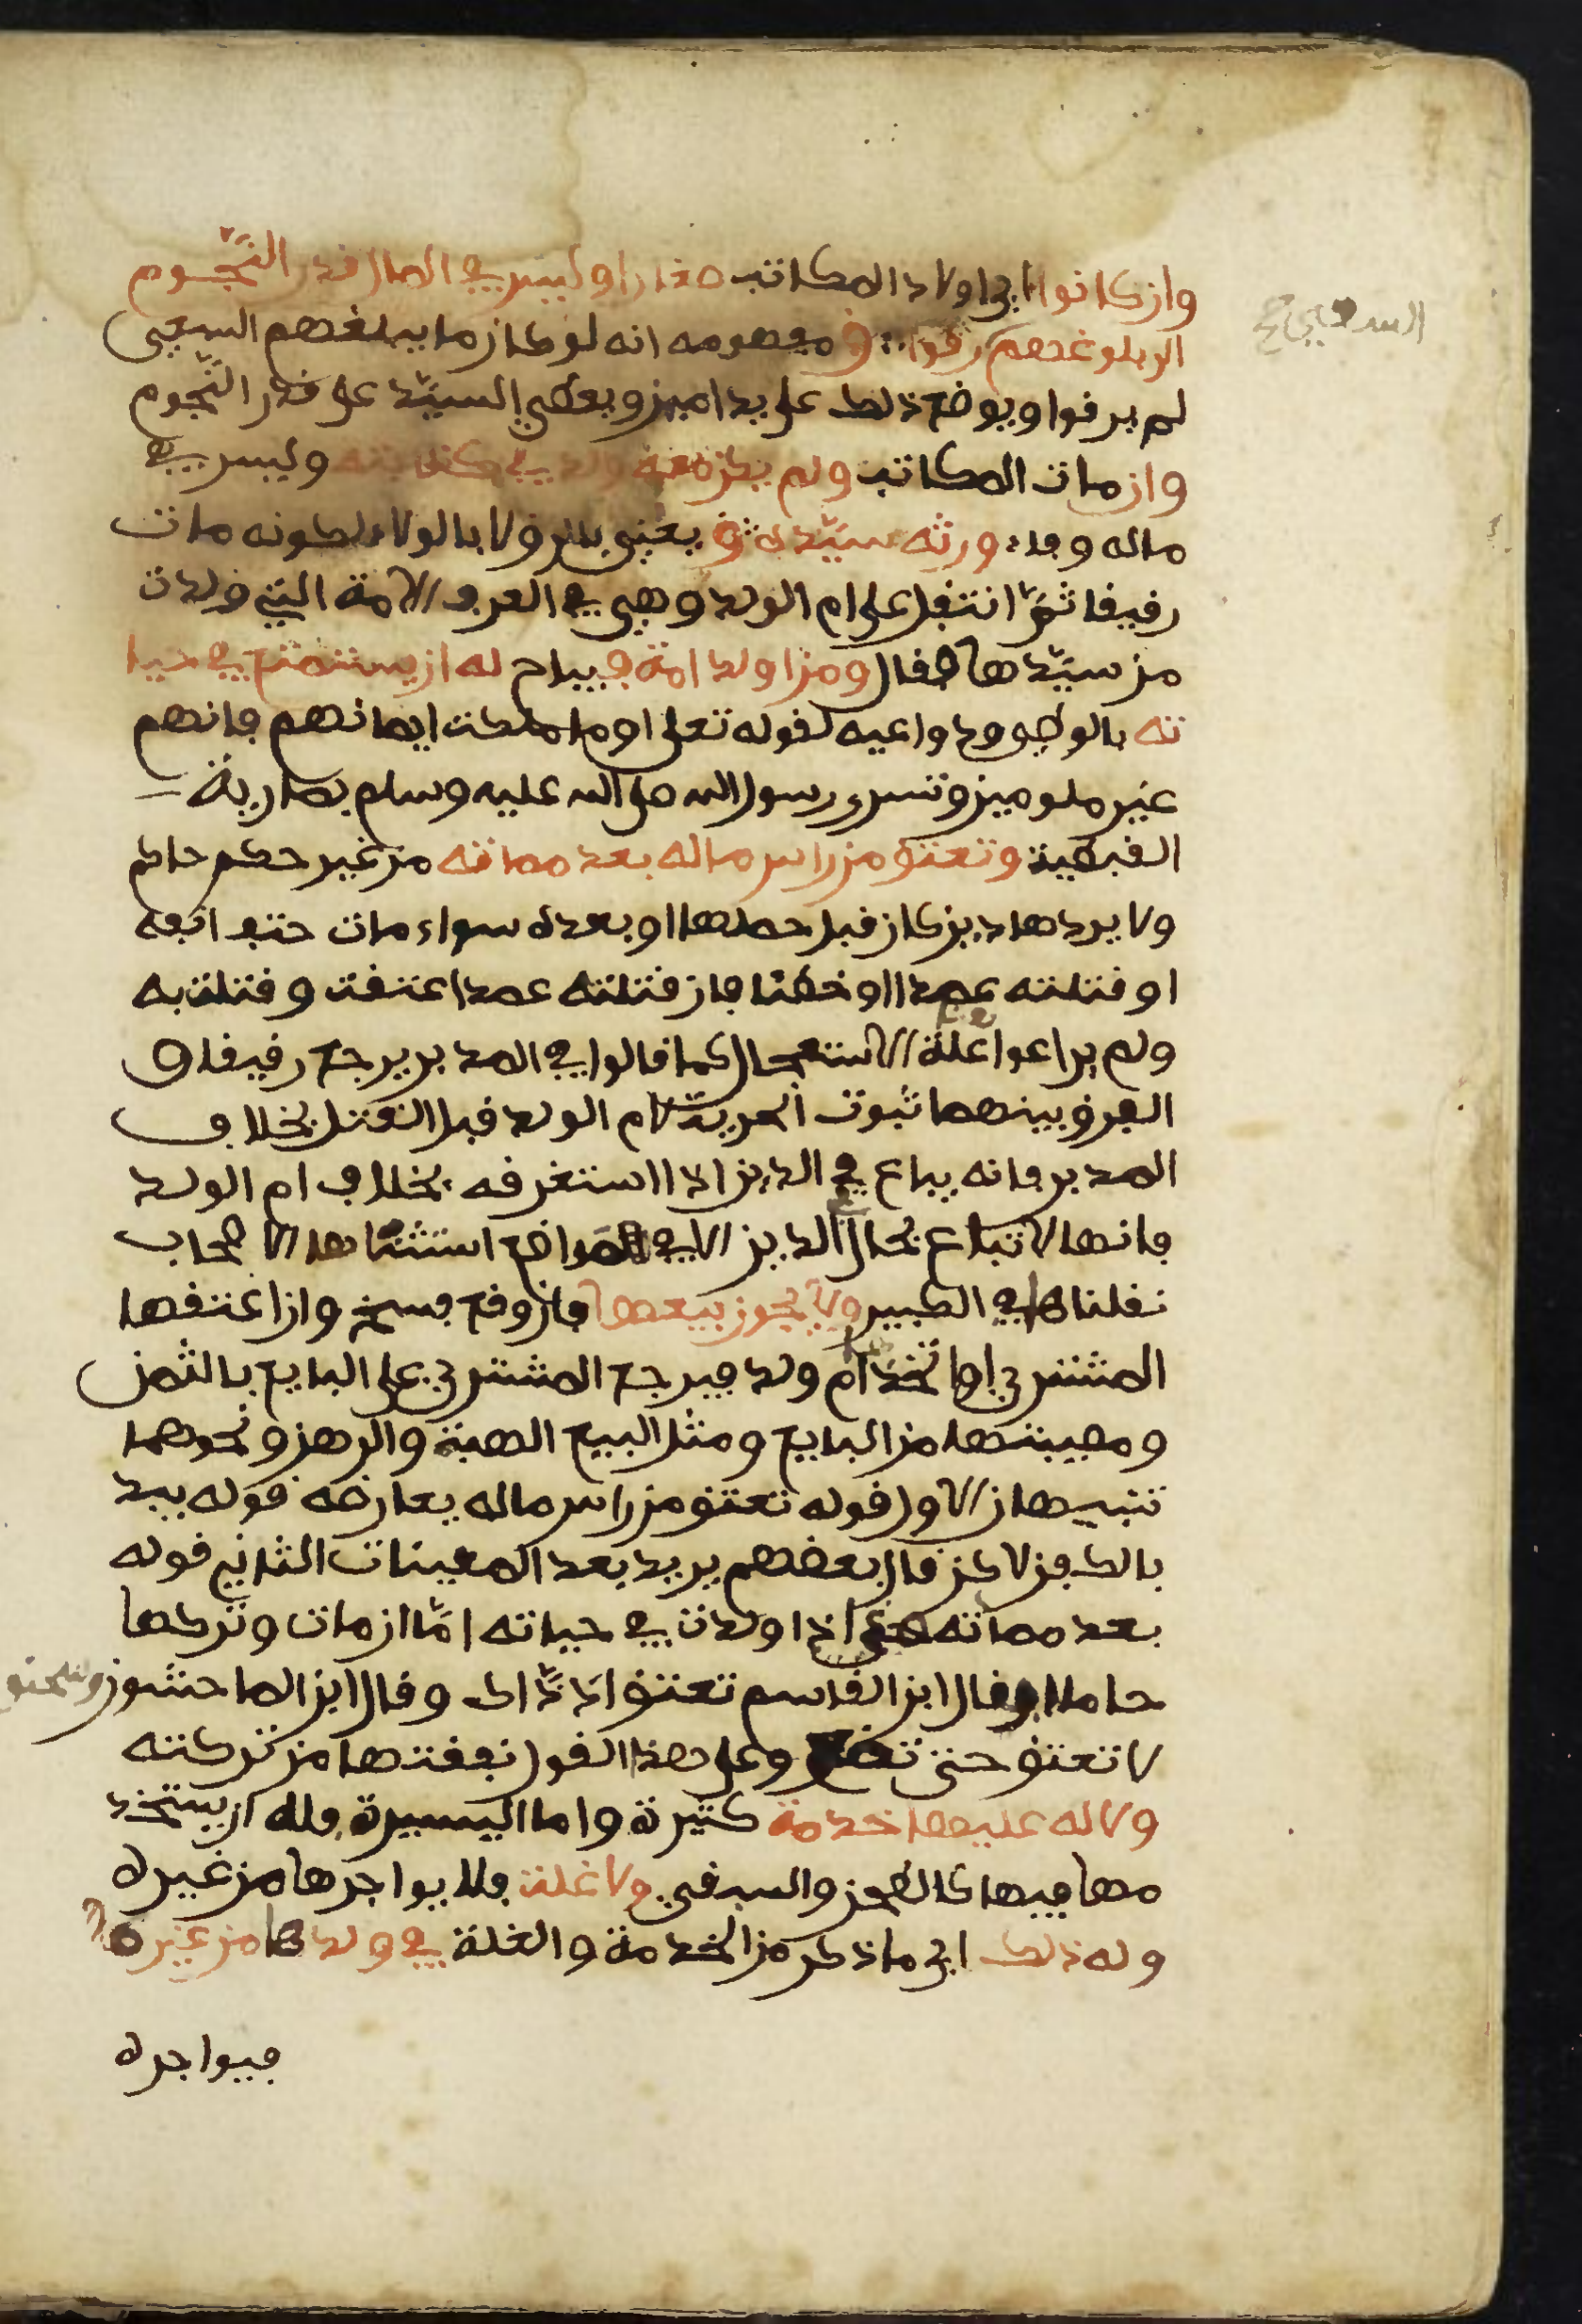 وان كانوا اي اولاد المكاتب صغارا وليس في المال قدر النجوم
الى بلوغهم رقوا ق مفهومه انه لو كان ما يبلغهم السعي
لم يرقوا ويوضع ذلك على يد امين ويعطي السيد على قدر النجوم
وان مات المكاتب ولم يكن معه ولد في كتابته وليس في
ماله وفاء ورثه سيده ق يعني بالرق لا بالولاء لكونه مات
رقيقا ثم انتقل على ام الولد وهي في العرف الامة التي ولدت
من سيدها فقال ومن اولد امة فيباح له ان يستمتع في حيا
ته بالوطي ودواعيه لقوله تعلى او ما ملكت ايمانهم فانهم
غير ملومين وتسرى رسول الله صلى الله عليه وسلم بمارية
القبطية وتعتق من راس ماله بعد مماته من غير حكم حاكم
ولا يردها دين كان قبل حملها او بعده سواء مات حتف انفه
او قتلته عمدا او خطئا فان قتلته عمدا عتقت وقتلت به
ولم يراعوا علة الاستعجال كما قالوا في المدبر يرجع رقيقا و
الفرق بينهما ثبوت الحرية لام الولد قبل القتل بخلاف
المدبر فانه يباع في الدين اذا استغرقه بخلاف ام الولد
فانها لا تباع بحال الدين الا في مواضع استثناها الاصحاب
نقلناها في الكبير ولا يجوز بيعها فان وقع فسخ وان اعتقها
المشتري او اتخذ ام ولد فيرجع المشتري على البايع بالثمن
ومصيبتها من البايع ومثل البيع الهبة والرهن ونحوهما
تنبيهان الاول قوله تعتق من راس ماله يعارضه قوله يبد
بالكفن لاكن قال بعضهم يريد بعد المعينات الثاني قوله
بعد مماته هي اذا ولدت في حياته اما ان مات وتركها
حاملا فقال ابن القاسم تعتق اذ ذاك وقال ابن الماجشون وسحنو
لا تعتق حتى تضع وعلى هذا القول نفقتها من تركته
ولا له عليها خدمة كثيرة واما اليسيرة فله ان يستخد
مها فيها كالطحن والسقي ولا غلة فلا يواجرها من غيره
وله ذلك اي ما ذكر من الخدمة والغلة في ولدها من غيره
فيواجره